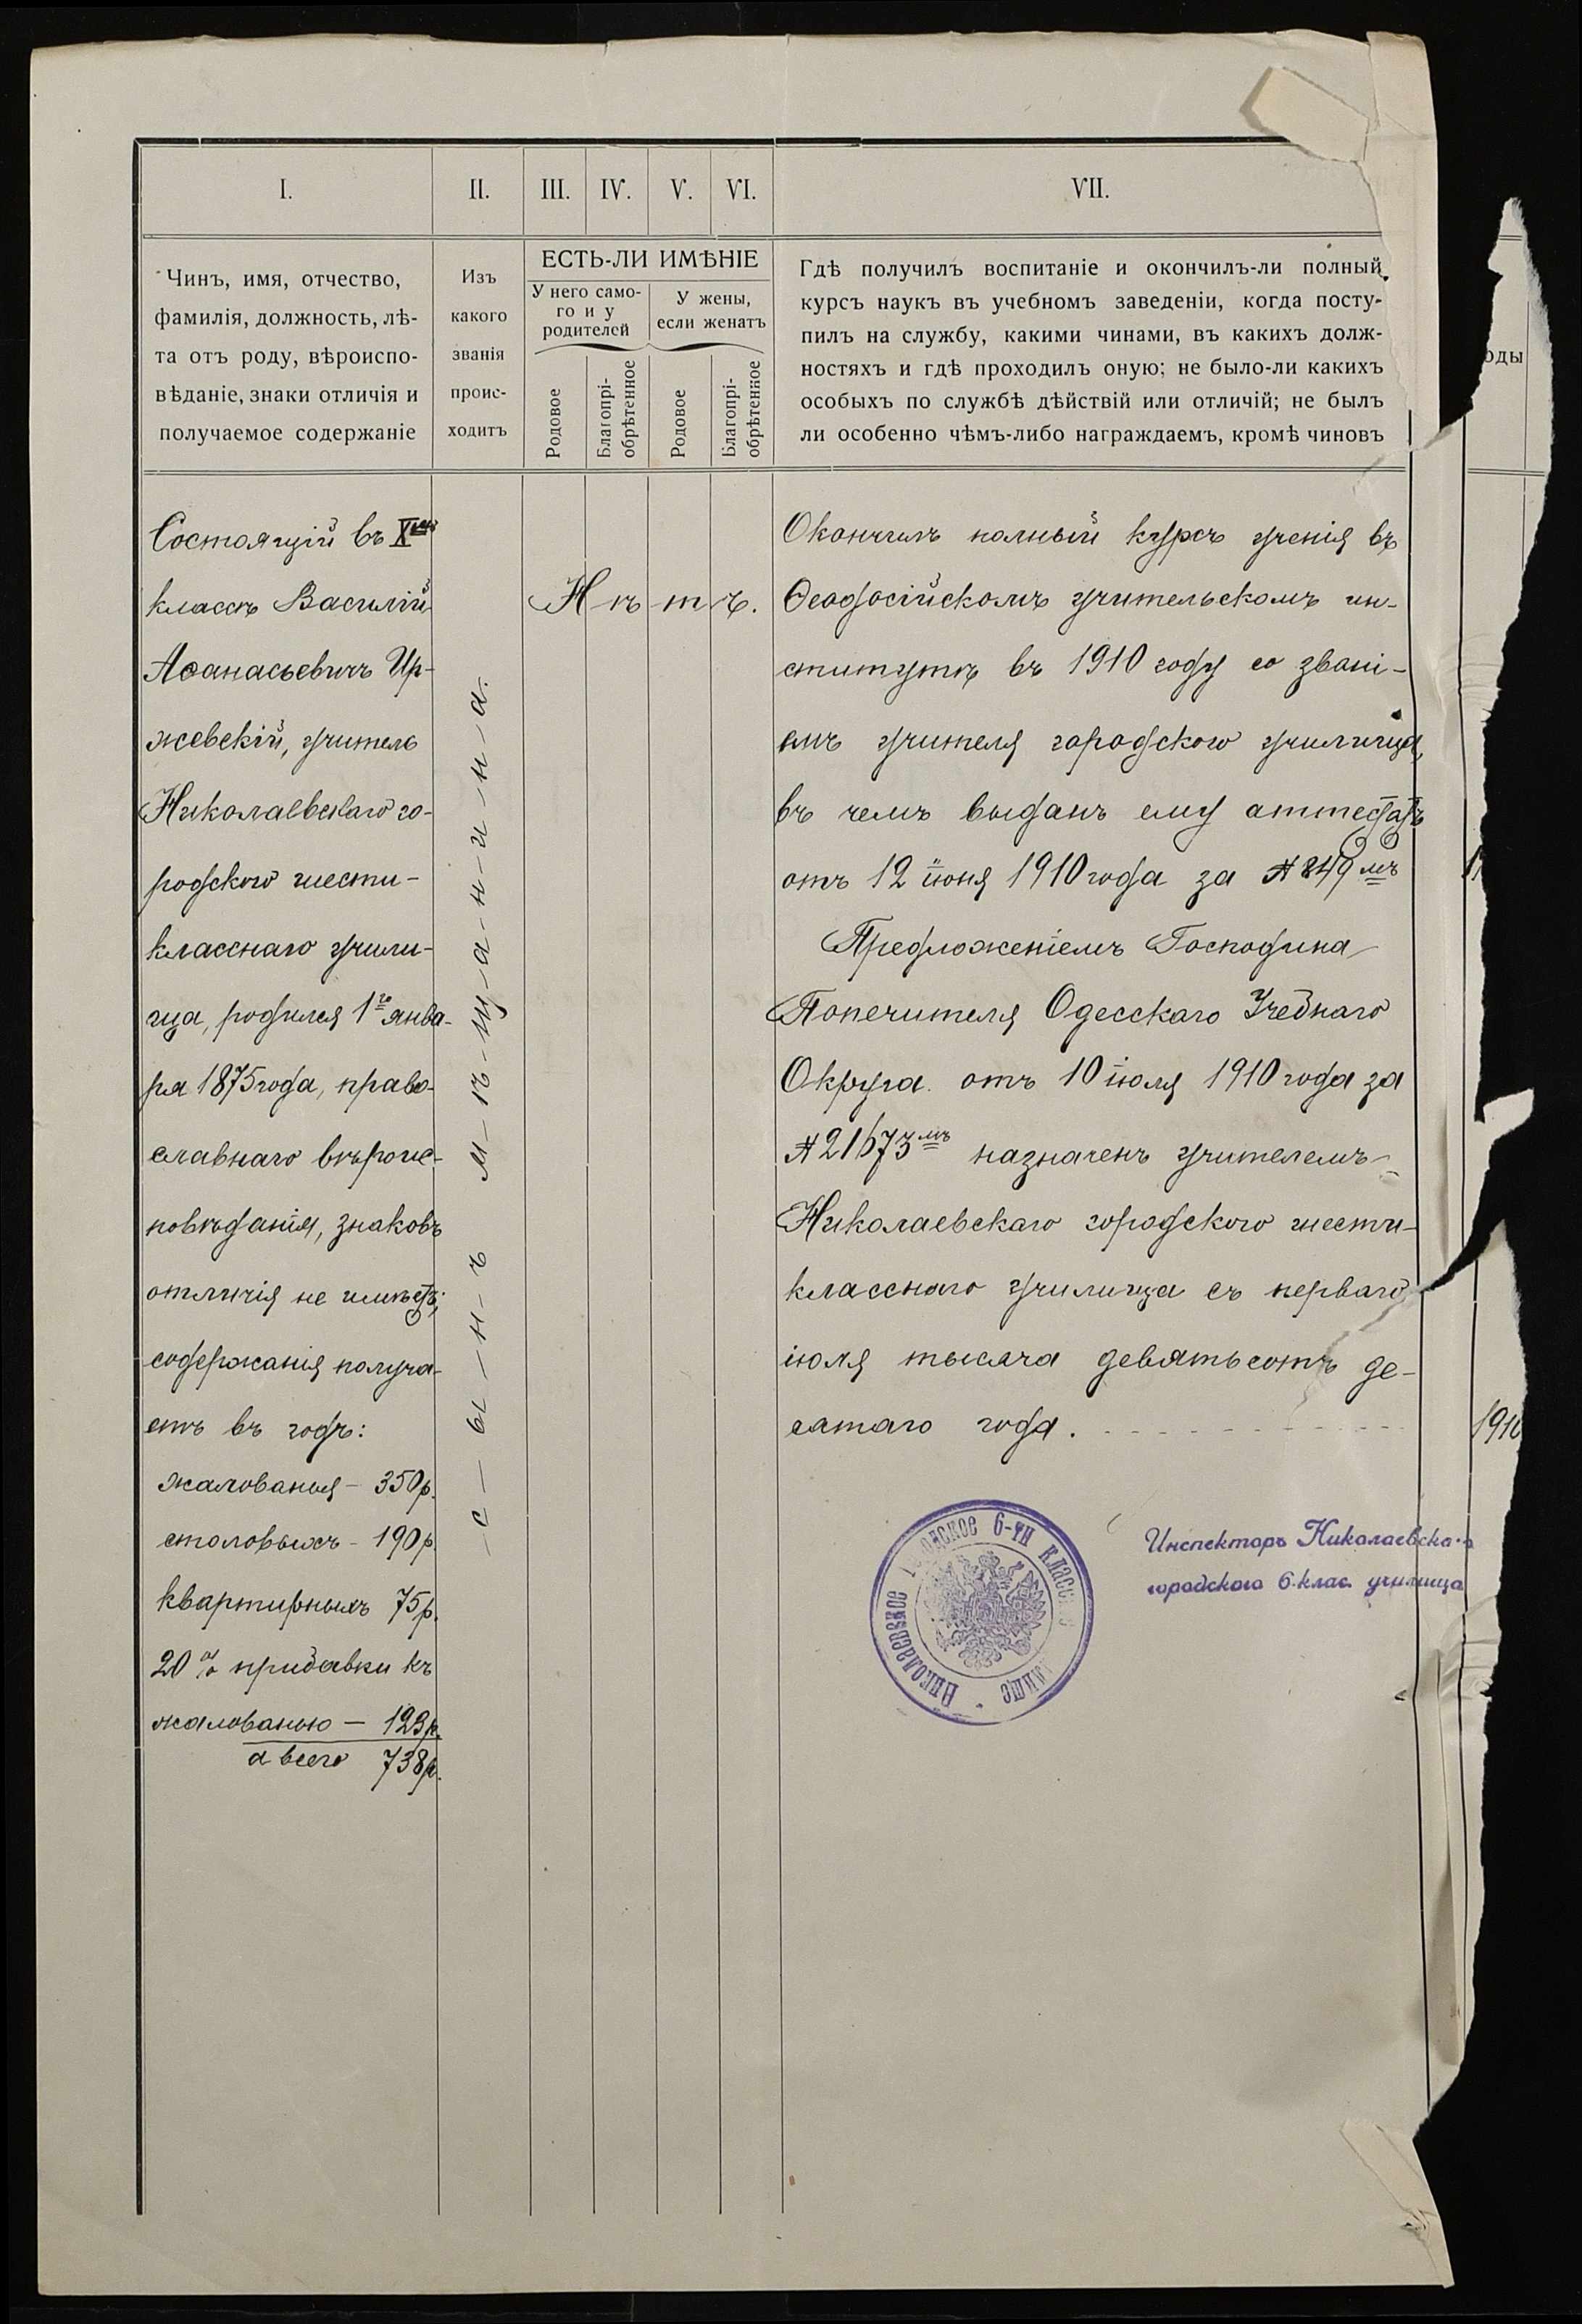 I.
II.
III.
IV.
V.
VI.
VII.
Чинъ, имя, отчество,
фамилія, должность, лѣ-
та отъ роду, вѣроиспо-
вѣданіе, знаки отличія и
получаемое содержаніе
Изъ
какого
званія
проис-
ходитъ
ЕСТЬ-ЛИ ИМѢНІЕ
У него само-
го и у
родителей
У жены,
если женатъ
Родовое
Благопрі-
обрѣтенное
Родовое
Благопрі-
обрѣтенное
Гдѣ получилъ воспитаніе и окончилъ-ли полный
курсъ наукъ въ учебномъ заведеніи, когда посту-
пилъ на службу, какими чинами, въ какихъ долж-
ностяхъ и гдѣ проходилъ оную; не было-ли какихъ
особыхъ по службѣ дѣйствій или отличій; не былъ
ли особенно чѣмъ-либо награждаемъ, кромѣ чиновъ
оды
Состоящій въ Хмъ
классѣ Василій
Аѳанасьевичъ Ир-
жевскій, учитель
Николаевскаго го-
родского шести-
класснаго учили-
ща, родился 1го янва-
ря 1875 года, право-
славнаго вѣроис-
повѣданія, знаковъ
отличія не имѣетъ;
содержанія получа-
етъ въ годъ:
жалованья - 350р.
столовыхъ - 190р.
квартирныхъ 75р.
20% прибавки къ
жалованью — 123р.
а всего 738р.
с — ы — н — ъ м — ѣ — щ — а — н — и — н — а.
Н ѣ т ъ.
Окончилъ полный курсъ ученія въ
Ѳеодосійскомъ учительскомъ ин-
ститутѣ въ 1910 году со звані-
емъ учителя городского училища,
въ чемъ выданъ ему аттестатъ
отъ 12 іюня 1910 года за № 849мъ
Предложеніемъ Господина
Попечителя Одесскаго Учебнаго
Округа отъ 10 іюля 1910 года за
№ 21673мъ назначенъ учителемъ
Николаевскаго городского шести-
класснаго училища съ перваго
іюля тысяча девятьсотъ де-
сятаго года.
1910
Николаевское Городское 6-ти класс
Инспекторъ Николаевска
городского 6.клас. училища